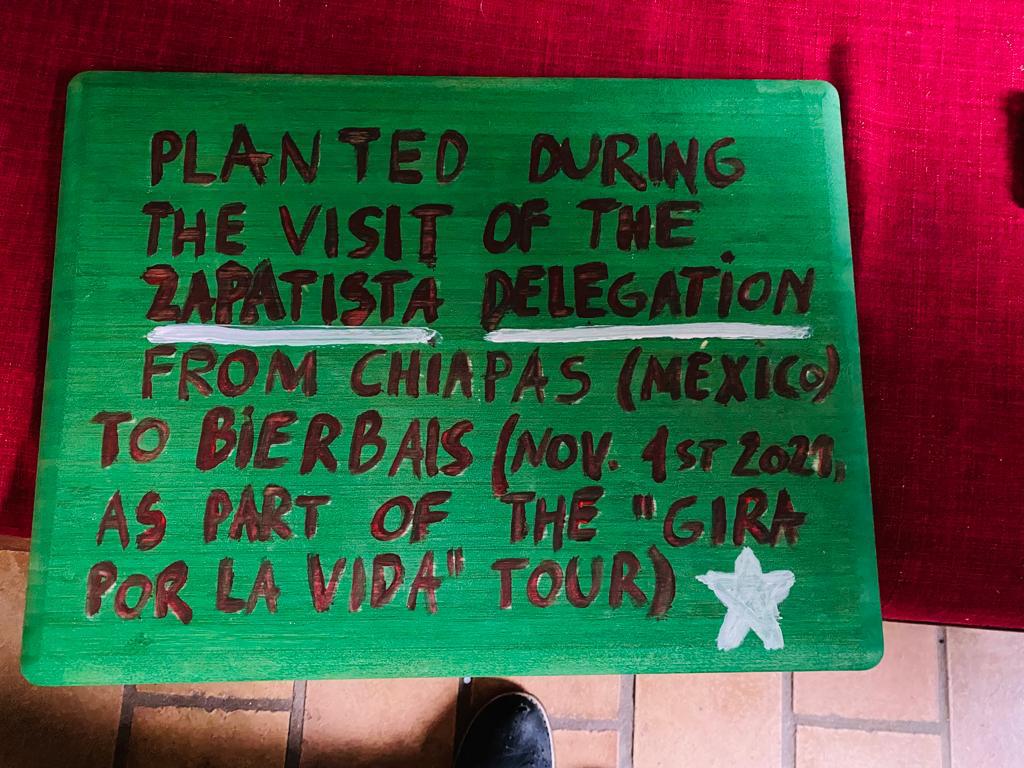 PLANTED DURING
THE VISIT OF THE
ZAPATISTA DELEGATION
FROM CHIAPAS (MEXICO)
TO BIERBAIS (NOV. 1ST 2021,
AS PART OF THE "GIRA
POR LA VIDA" TOUR)